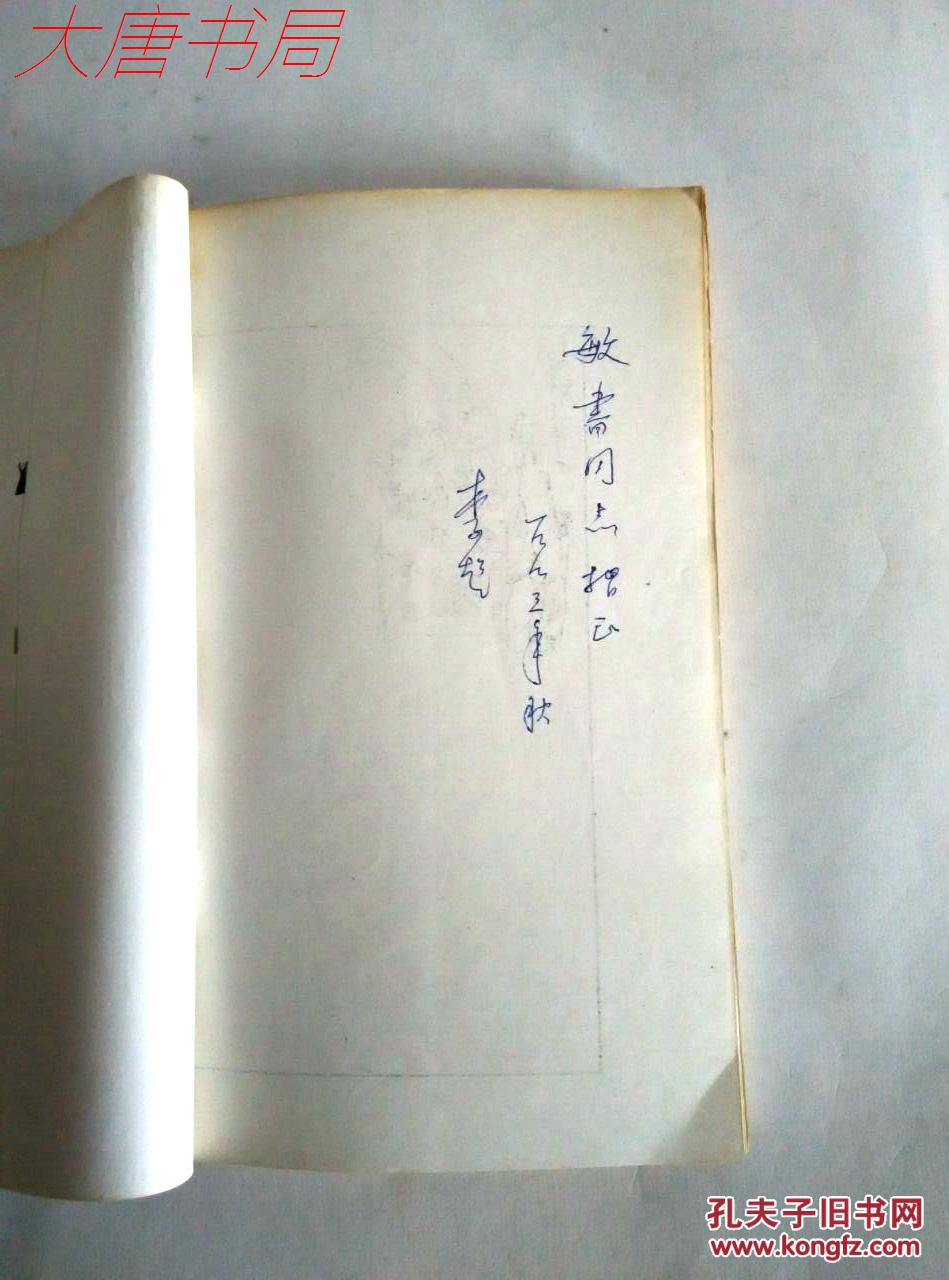 大唐书局
敏書同志指正
一九九三年秋
李超
孔夫子旧书网
www.kongfz.com